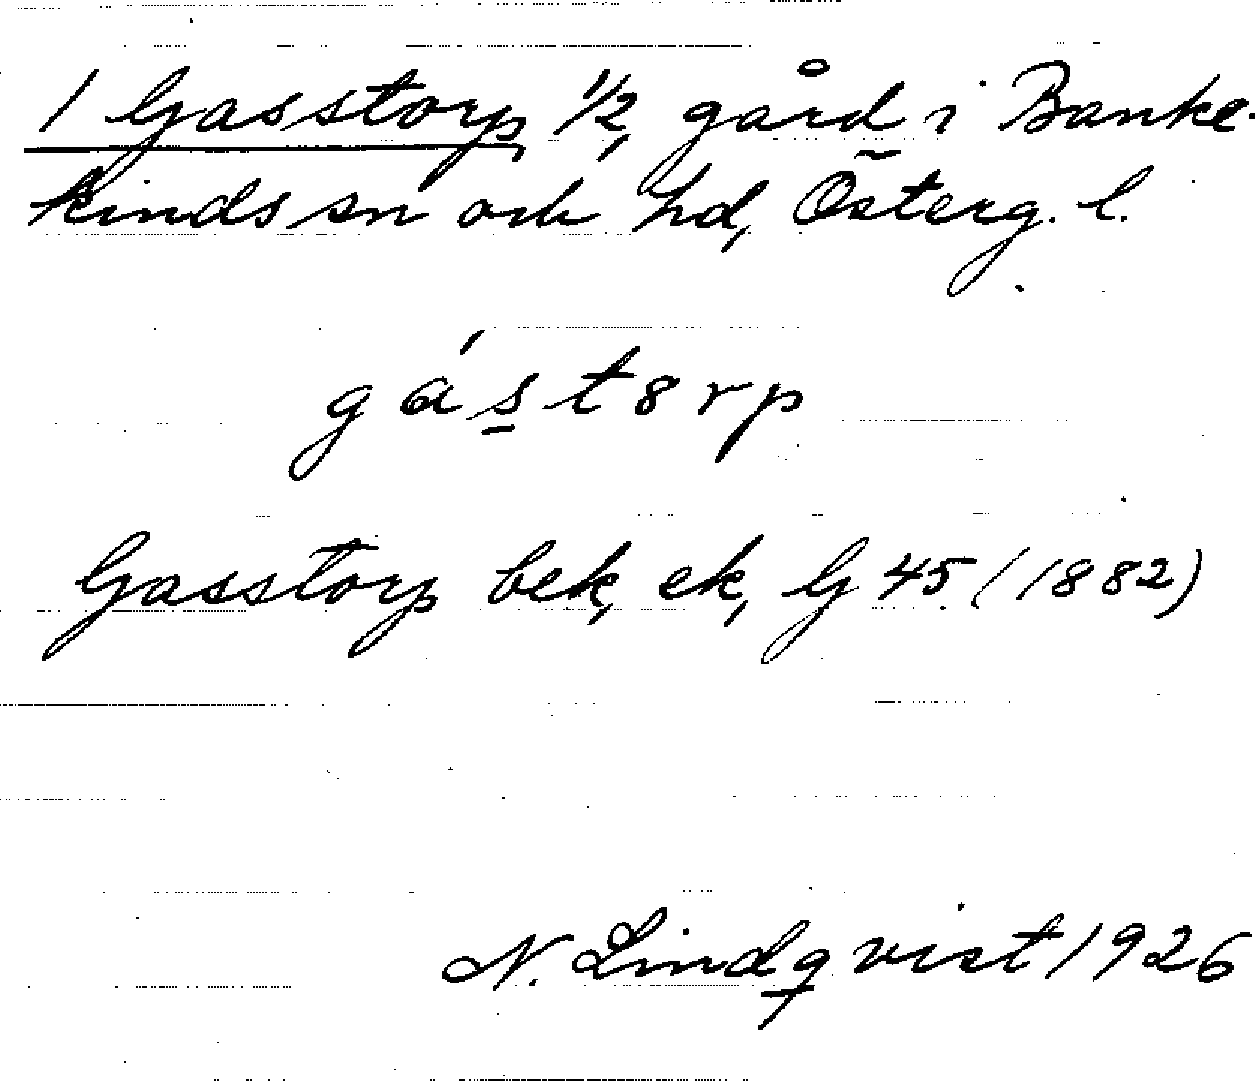 1 Gasstorp 1/2, gård i Banke-
kinds sn och hd, Österg. l.
gás̲t8rp
Gasstorp bek, ek, G 45 (1882)
N. Lindqvist 1926